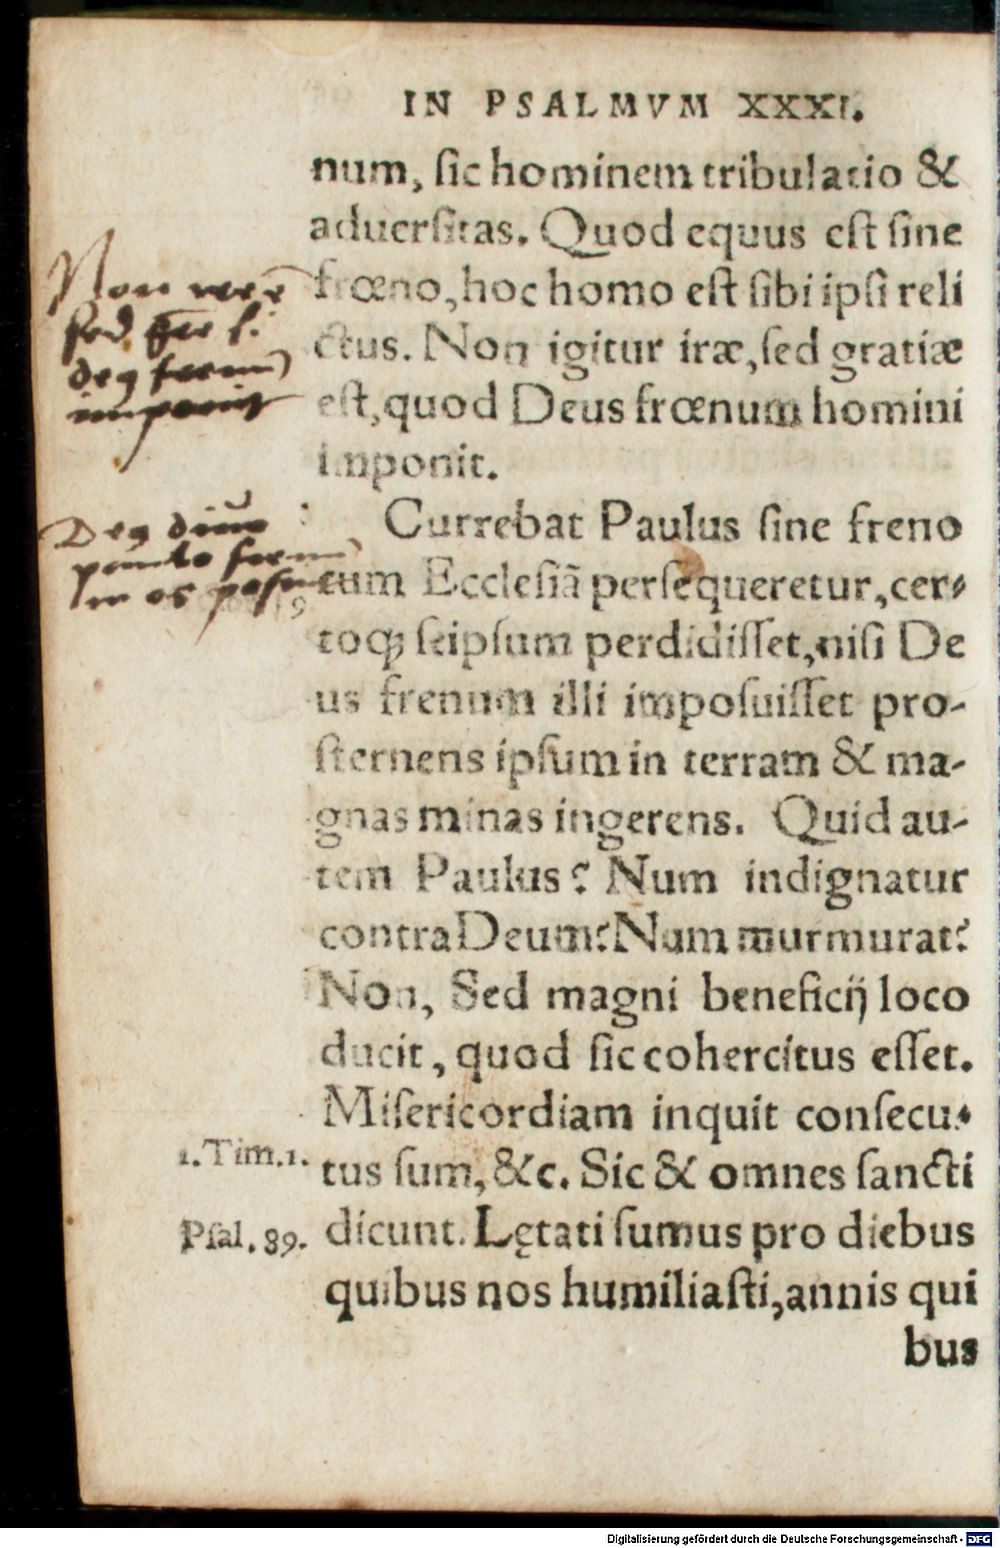 IN PSALMVM XXXI.
num, ſic hominem tribulatio &
aduerſitas. Quod equus eſt ſine
frœno, hoc homo eſt ſibi ipſi reli
ctus. Non igitur iræ, ſed gratiæ
eſt, quod Deus frœnum homini
imponit.
Non
ſed
imponit
Currebat Paulus ſine freno
cum Eccleſiã perſequeretur, cer-
toq; ſeipſum perdidiſſet, niſi De
us frenum illi impoſuiſſet pro-
ſternens ipſum in terram & ma-
gnas minas ingerens. Quid au-
tem Paulus? Num indignatur
contra Deum? Num murmurat?
Non, Sed magni beneficij loco
ducit, quod ſic cohercitus eſſet.
Miſericordiam inquit conſecu-
1.Tim.1. tus ſum, &c. Sic & omnes ſancti
Pſal. 89. dicunt. Lętati ſumus pro diebus
quibus nos humiliaſti, annis qui
bus
Digitalisierung gefördert durch die Deutsche Forschungsgemeinschaft - DFG